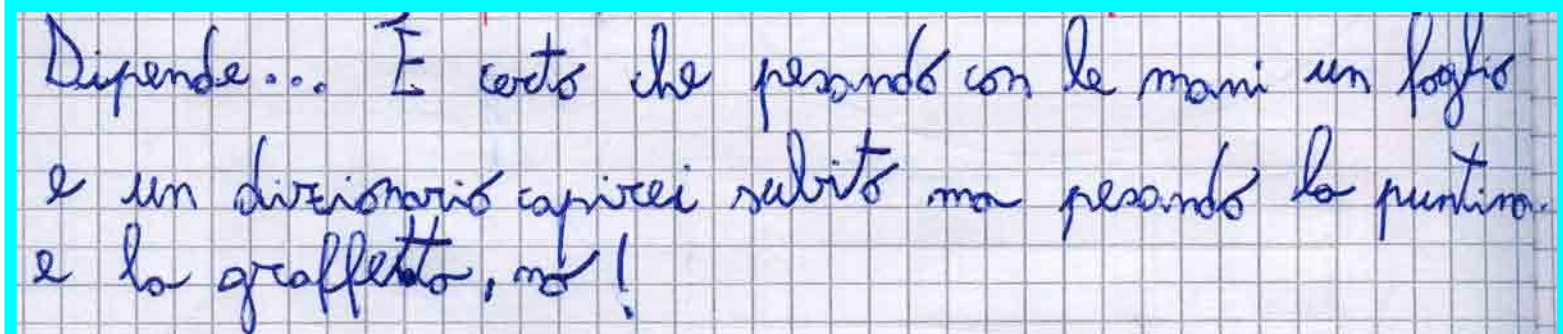 Dipende... È certo che pesando con le mani un foglio
e un dizionario capirei subito ma pesando la puntina
e la graffetta, no!